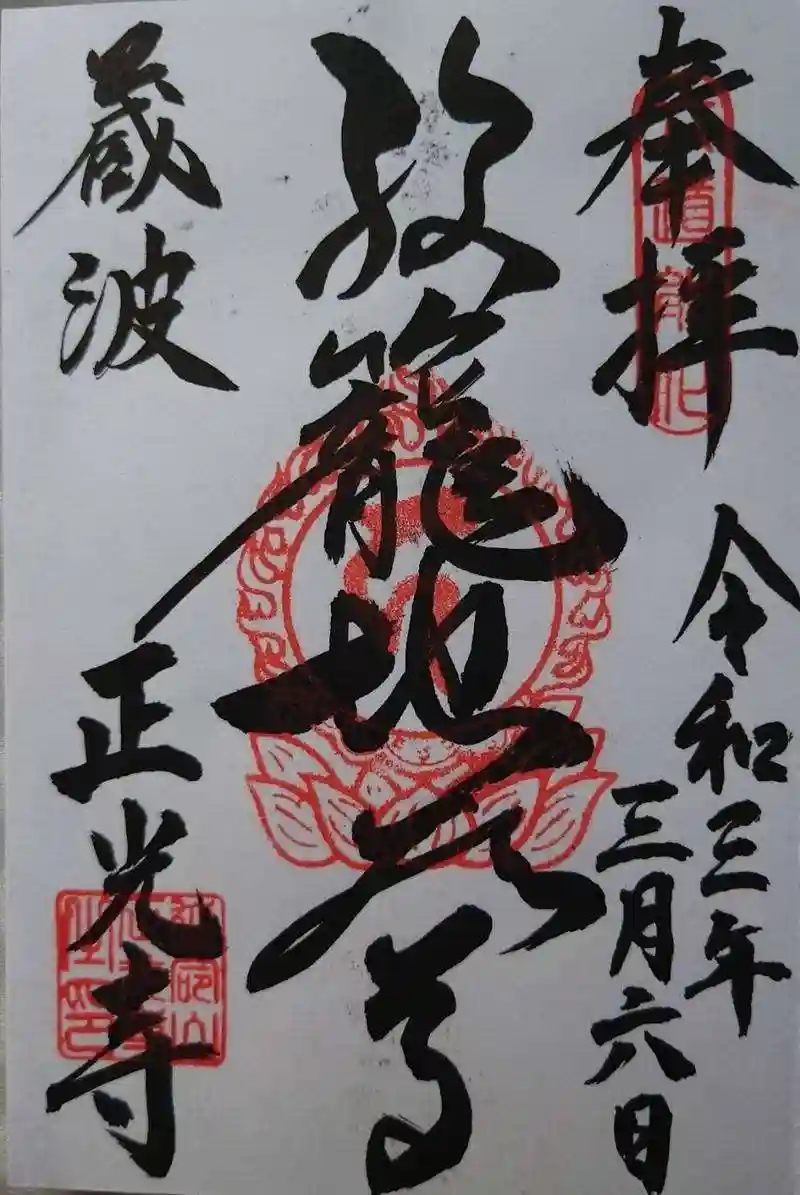 奉拝
令和三年
三月六日
籠地蔵尊
蔵波
正光寺